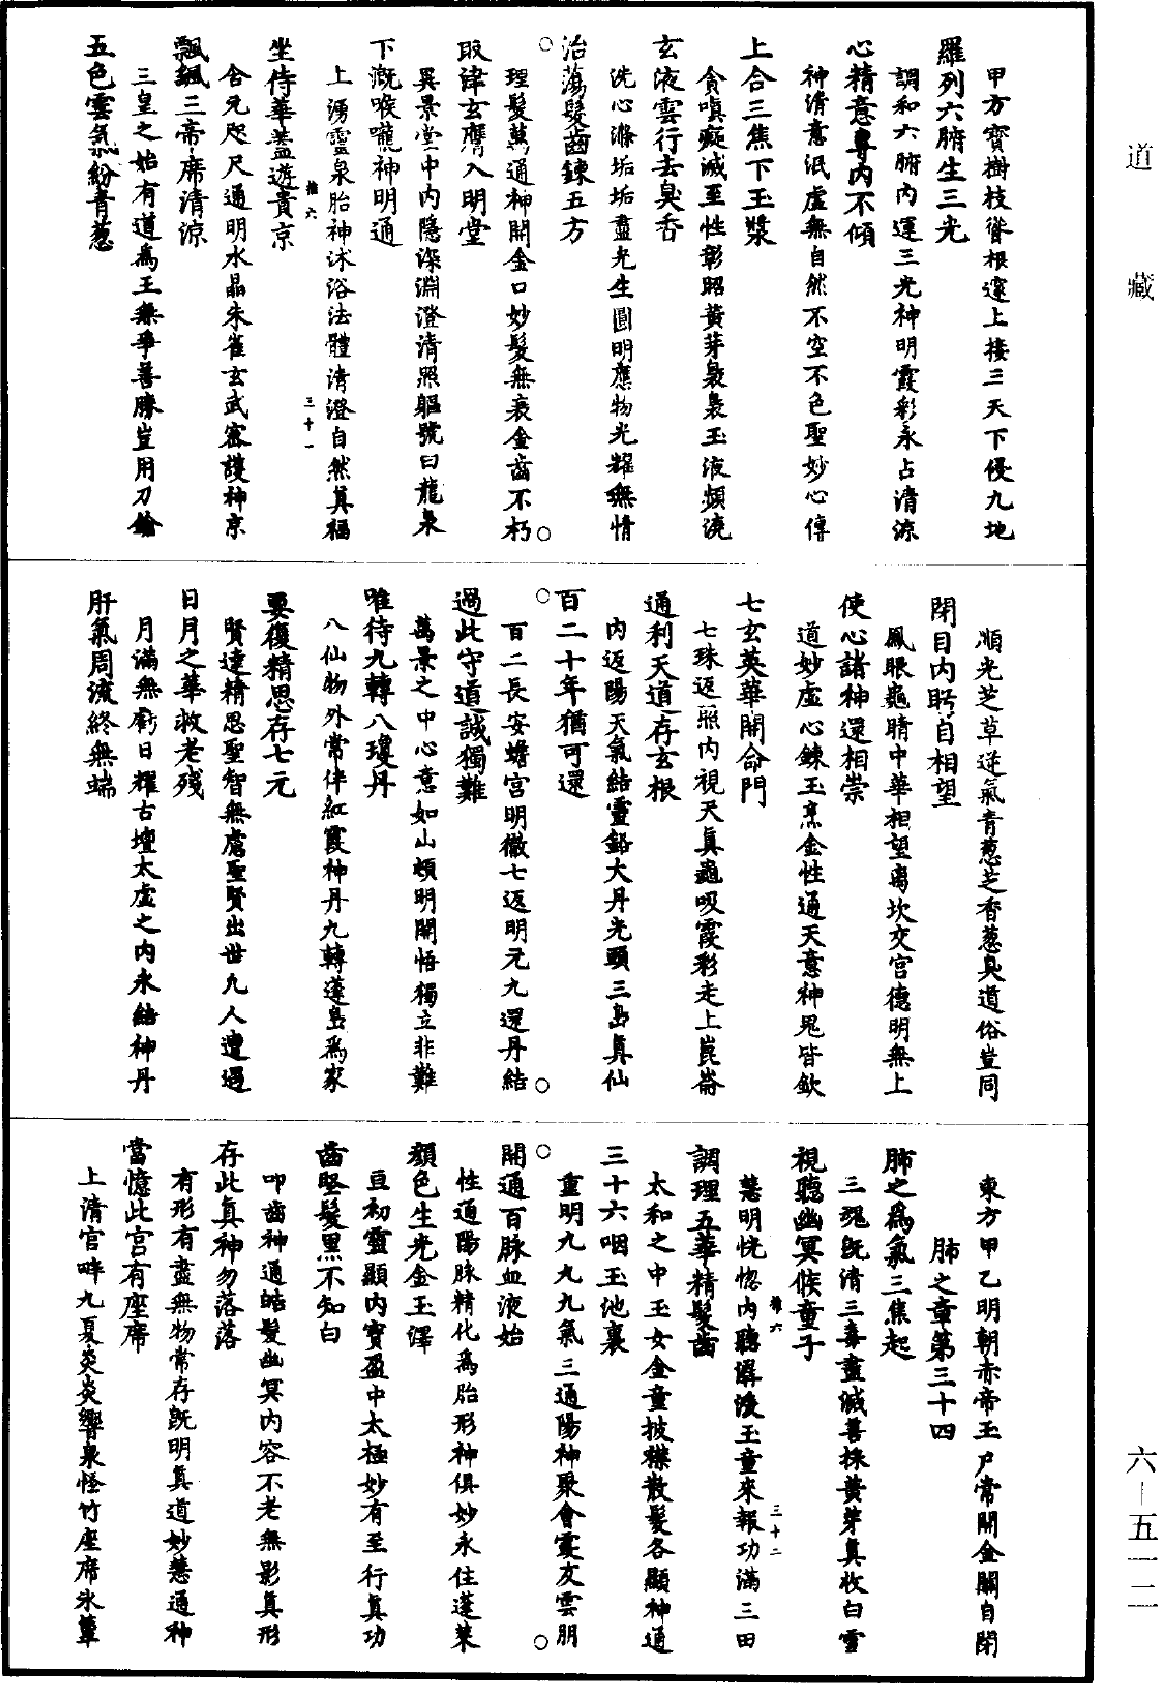 道藏
甲方寶樹枝聳根邃上接三天下侵九地
羅列六腑生三光
調和六腑內運三光神明霞彩永占清涼
心精意專內不傾
神清意泯虛無自然不空不色聖妙心傳
上合三焦下玉漿
貪嗔癡滅至性彰昭黃芽裊裊玉液頻澆
玄液雲行去臭香
洗心滌垢垢盡光生圓明應物光耀無情
治蕩髮齒鍊五方
理髮萬通神開金口妙髮無衰金齒不朽
取津玄膺入明堂
異景堂中內隱深淵澄清照軀號曰龍泉
下溉喉嚨神明通
上湧靈泉胎神沐浴法體清澄自然真福
坐侍華蓋遊貴京
含元咫尺通明水晶朱雀玄武密護神京
飄颻三帝席清涼
三皇之始有道為王無爭善勝豈用刀鎗
五色雲氣紛青蔥
順光芝草逆氣青蔥芝香蔥臭道俗豈同
閉目內眄自相望
鳳眼龜睛中華相望离坎交宮德明無上
使心諸神還相崇
道妙虛心鍊玉烹金性通天意神鬼皆欽
七玄英華開命門
七珠返照內視天真龜吸霞彩走上崑崙
通利天道存玄根
內返陽天氣結靈鉛大丹光顯三島真仙
百二十年猶可還
百二長安蟾宮明徹七返明元九還丹結
過此守道誠獨難
萬景之中心意如山頓明開悟獨立非難
唯待九轉八瓊丹
八仙物外常伴紅霞神丹九轉蓬島為家
要復精思存七元
賢達精思聖智無慮聖賢出世凡人遭遇
日月之華救老殘
月滿無虧日耀古壇太虛之內永結神丹
肝氣周流終無端
東方甲乙明朝赤帝玉户常開金關自閉
肺之章第三十四
肺之為氣三焦起
三魂既清三毒盡滅善採黃芽真收白雪
視聽幽冥候童子
慧明恍惚內聽潺湲玉童來報功滿三田
調理五華精髮齒
太和之中玉女金童披襟散髮各顯神通
三十六咽玉池裏
重明九九九氣三通陽神聚會霞友雲朋
開通百脉血液始
性通陽脉精化為胎形神俱妙永住蓬萊
顏色生光金玉澤
豆初靈顯內寶盈中太極妙有至行真功
齒堅髮黑不知白
叩齒神通皓髮幽冥內容不老無影真形
存此真神勿落落
有形有盡無物常存既明真道妙慧通神
當憶此宮有座席
上清宮畔九夏炎炎響泉怪竹座席氷簟
三十一
三十二
六—五一二